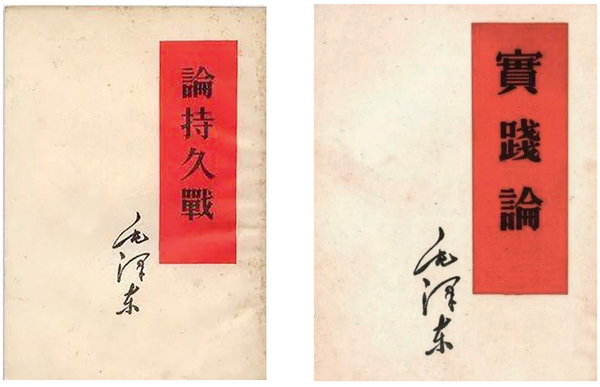 論持久戰
毛泽东
實踐論
毛泽东